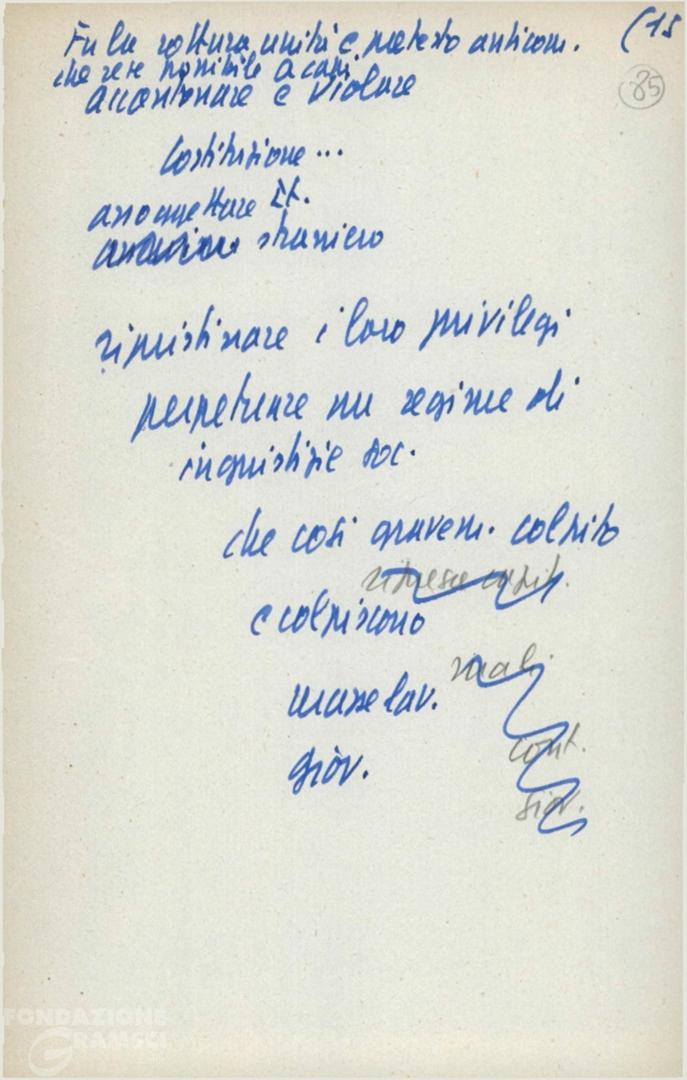 (15
85
Fu la rottura unità e pretesto anticom.
che rese possibile a cap.
accantonare e violare
Costituzione...
assoggettare It.
straniero
ripristinare i loro privilegi
perpetuare un regime di
ingiustizie soc.
che così gravem. colpito
ripresa capit.
e colpiscono
masse lav.
giov.
cont.
giov.
FONDAZIONE
GRAMSCI